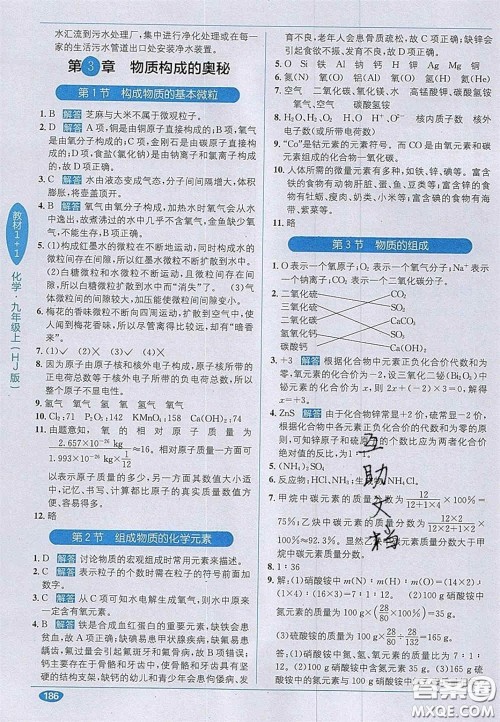 水汇流到污水处理厂,集中进行净化处理或在每一
家的生活污水管道出口处安装净水装置。
第3章 物质构成的奥秘
第1节 构成物质的基本微粒
1. B 解答 芝麻与大米不属于微观粒子。
2. D 解答 A项,铜是由铜原子直接构成的;B项,氧气是由氧分子直接构成的;C项,金刚石是由碳原子直接构成的;D项,食盐(氯化钠)是由钠离子和氯离子构成的,故D项正确。
3. C 解答 水由液态变成气态,分子间间隔增大,体积膨胀,将壶盖顶开。
4. B 解答 氧气由氧分子构成,加热水时氧气会从水中逸出,故煮沸过的水中几乎不含氧气,金鱼缺氧不能生存。
5. (1)构成红墨水的微粒在不断运动,同时构成水的微粒间存在间隔,所以红墨水扩散到水中。
(2)白糖微粒和水微粒都在不断运动,同时水微粒间存在间隔,所以白糖微粒扩散到水中而“消失”了。 (3)气体微粒间的间隔较大,体积可以压缩。
6. 梅花的香味微粒不断向四周运动,扩散到空气中,使人闻到梅花香味,所以尽管离得比较远,却有“暗香来”。
7. (1)√ (2)× (3)× (4)√
8. 因为原子由原子核和核外电子构成,原子核所带的正电荷总数等于核外电子所带的负电荷总数,所以整个原子不显电性。
9. 氢气 氧气 氢 氧 氢气 氧气
10. Cl₂;71 P₂O₅;142 KMnO₄;158 CuO₂;74
11. 由题意知,氧的相对原子质量为
2.657×10⁻²⁶ kg / (1.993×10⁻²⁶ kg×1/12) ≈16。科学上一般不直接用原子的实际质量
表示质量,因为原子质量太小,书写、记忆都比原子的真实质量数值方便,容易得多。
12. 略
第2节 组成物质的化学元素
1. D 解答 讨论物质的宏观组成时常用元素来描述。
2. D 解答 表示粒子的个数时需在粒子的符号前面加数字。
3. A 解答 从C项可知水电解生成了氧气,则水中一定含有氧元素。
4. B 解答 铁是合成血红蛋白的重要元素,缺铁会患贫血,故A项正确;缺碘易患甲状腺疾病,缺氟易患龋齿,氟过量会引起氟斑牙和氟骨病,故B项错误;钙主要存在于骨骼和牙齿中,使骨骼和牙齿具有坚硬的结构支架,缺钙幼儿及青少年会患佝偻病,发
育不良,老年人会患骨质疏松,故C项正确;缺锌会引起食欲不振,发育不良,故D项正确。
5. O Si 铁 铝 钙 H C Cu 硫 钠
6. 氮(N) 氧(O) 铝(Al) 铁(Fe) 硅(Si) 氯(Cl)
7. 空气 二氧化碳、氧化镁、水 高锰酸钾、碳酸氢铵 氧气 碳酸氢铵
8. 核内质子数 核外电子数(或所带电荷数)
9. “Co”是钴元素的元素符号。而CO是由氧元素和碳元素组成的化合物一氧化碳。
10. 人体所需的微量元素有多种,如铁、锌、碘等。富含铁的食物有动物肝脏、蛋、鱼、豆类等;富含锌的食物有瘦肉、肝、蛋等;富含碘的食物有海产品、加碘盐等。
11. 略
第3节 物质的组成
1. O表示一个氧原子;O₂表示一个氧气分子;Na⁺表示一个钠离子;CO₂表示一个二氧化碳分子。
2. 二氧化碳
三氧化硫
二氧化硫
氢氧化钙
碳酸钙
CO₂
SO₂
CaCO₃
SO₃
Ca(OH)₂
3. +3 解答 根据化合物中元素正负化合价代数和为零,氧元素显−2价,设三氧化二铋(Bi₂O₃)中铋元素的化合价为x,则2x+(−2)×3=0,解得x=+3。
4. ZnS 解答 由于化合物锌常显+2价,硫常显−2价,则锌原子和硫原子的个数比应为两者化合价绝对值的反比。
5. (NH₄)₂SO₄
6. 反应物:HCl、NH₃;生成物:NH₄Cl。
7. 甲烷中碳元素的质量分数为12/(12+1×4)×100%=75%;乙炔中碳元素的质量分数为12×2/(12×2+1×2)×100%≈92.3%。
8. 1∶36
9. 解:(1)硝酸铵中m(N)∶m(H)∶m(O)=(14×2)∶(1×4)∶(16×3)=7∶1∶12。 (2)100 g硝酸铵中氮元素的质量为100 g×(28/80×100%)=35 g。
(3)设硫酸铵的质量为x,则100 g×(28/80×100%)=x×(28/132×100%),解得x=165 g。
答:(1)硝酸铵中氮、氢、氧元素的质量比为7∶1∶12;(2)100 g硝酸铵中氮元素的质量为35 g;(3)165 g硫酸铵中氮元素的质量与100 g硝酸铵中氮
教材1+1
化学·九年级上(HJ版)
186
互助文档
答案圈
MXQE.COM